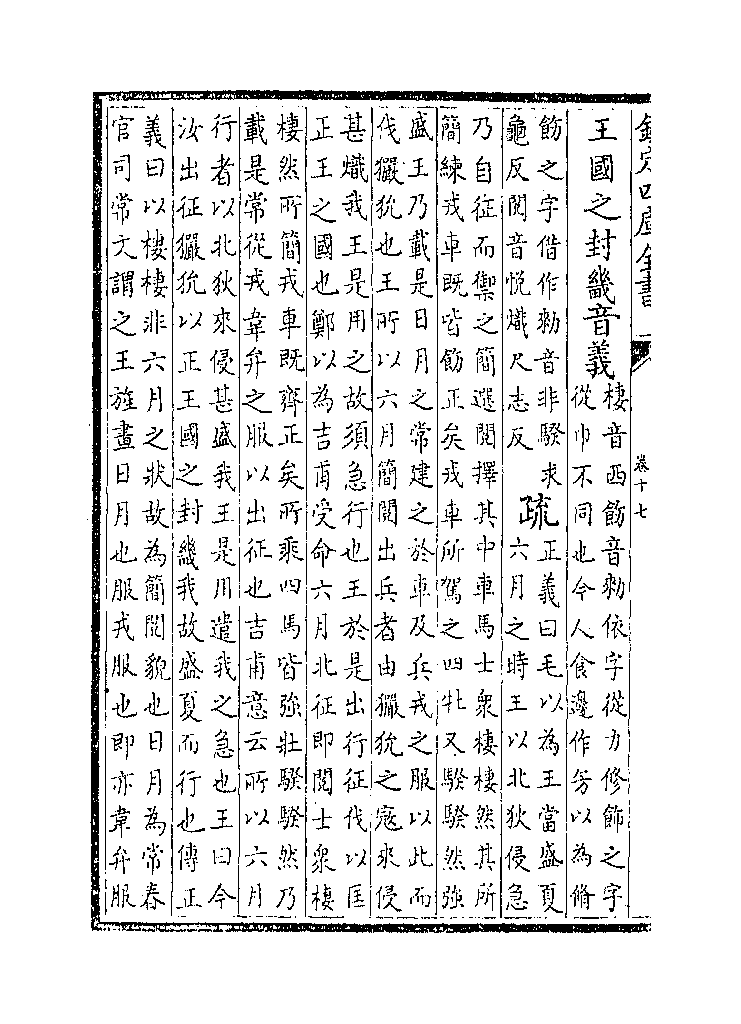 欽定四庫全書
卷十七
王國之封畿音義
棲音西飭音勑依字從力修飾之字
從巾不同也今人食邊作芳以為脩
飭之字借作勑音非騤求
龜反閱音悅熾尺志反
疏
正義曰毛以為王當盛夏
六月之時王以北狄侵急
乃自征而禦之簡選閱擇其中車馬士眾棲棲然其所
簡練戎車既皆飭正矣戎車所駕之四牡又騤騤然強
盛王乃載是日月之常建之於車及兵戎之服以此而
伐玁狁也王所以六月簡閱出兵者由玁狁之寇來侵
甚熾我王是用之故須急行也王於是出行征伐以匡
正王之國也鄭以為吉甫受命六月北征即閱士眾棲
棲然所簡戎車既齊正矣所乘四馬皆強壯騤騤然乃
載是常從戎韋弁之服以出征也吉甫意云所以六月
行者以北狄來侵甚盛我王是用遣我之急也王曰今
汝出征玁狁以正王國之封畿我故盛夏而行也傳正
義曰以棲棲非六月之狀故為簡閱貌也日月為常春
官司常文謂之王旌畫日月也服戎服也即亦韋弁服